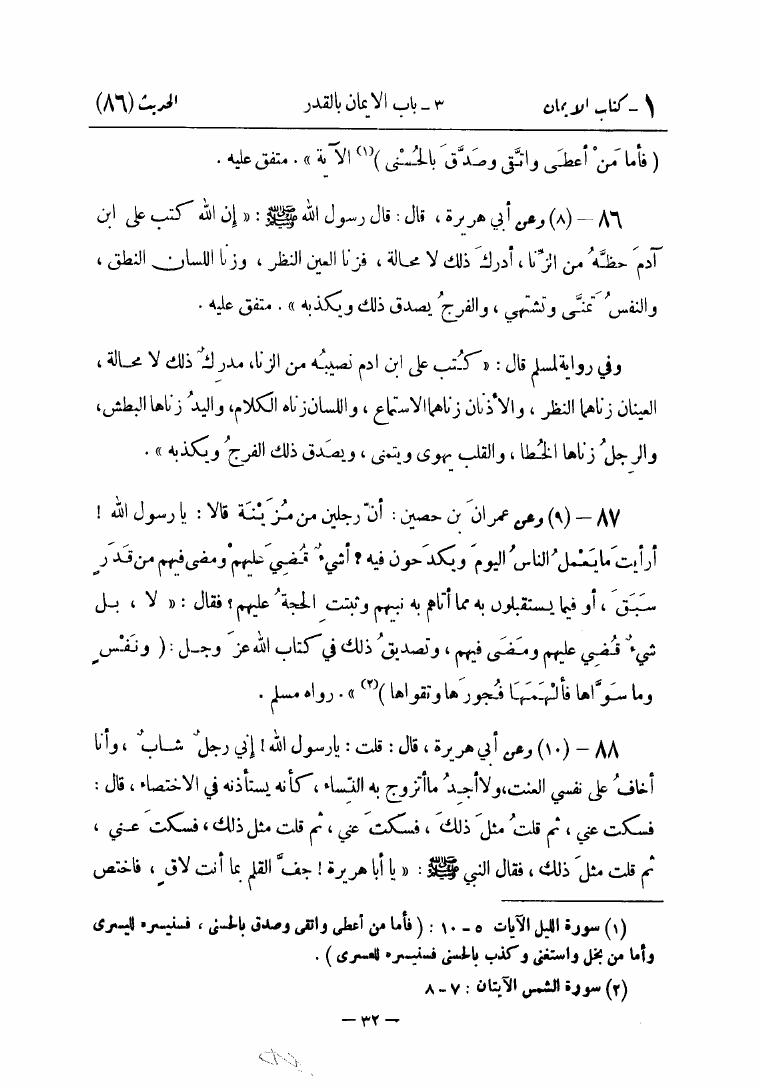 ١ - كتاب الايمان ٣ - باب الايمان بالقدر الحديث (٨٦)
( فأما مَنْ أعطَى واتَّقى وصَدَّقَ بالحُسْنى )(١) الآية » . متفق عليه .
٨٦ - (٨) وعن أبي هريرة ، قال : قال رسول الله ﷺ : « إن الله كتب على ابن
آدمَ حظَّهُ من الزِّنا ، أدركَ ذلك لا محالة ، فزنا العين النظر ، وزنا اللسان النطق ،
والنفسُ تمنَّى وتشتهي ، والفرجُ يصدق ذلك ويكذبه » . متفق عليه .
وفي رواية لمسلم قال : « كُتب على ابن ادم نصيبُه من الزنا، مدركٌ ذلك لا محالة ،
العينان زناهما النظر ، والأذنان زناهما الاستماع ، واللسان زناه الكلام، واليدُ زناها البطش،
والرجلُ زناها الخُطا ، والقلب يهوى ويتمنى ، ويصَدق ذلك الفرجُ ويكذبه » .
٨٧ - (٩) وعن عمرانَ بن حصين : أنّ رجلين من مُزَيْنَة قالا : يا رسول الله !
أرأيتَ ما يَعْملُ الناسُ اليومَ ويكدَحون فيه ؟ أشيءٌ قُضِيَ عليهمْ ومضى فيهم من قَدَرٍ
سَبَقَ ، أو فيما يستقبلون به مما أتاهم به نبيهم وثبتت الحجةُ عليهم ؟ فقال : « لا ، بل
شيءٌ قُضِي عليهم ومَضَى فيهم ، وتصديقُ ذلك في كتاب الله عزَّ وجل : ( ونَفْسٍ
وما سَوَّاها فألْهَمَهَا فُجورَها وتقواها )(٢) » . رواه مسلم .
٨٨ - (١٠) وعن أبي هريرة ، قال : قلت : يارسول الله ! إني رجلٌ شابٌ ، وأنا
أخافُ على نفسي العنت، ولا أجِدُ ما أتزوج به النساء ، كأنه يستأذنه في الاختصاء ، قال :
فسكت عني ، ثم قلتُ مثلَ ذلكَ ، فسكتَ عني ، ثم قلت مثل ذلك، فسكتَ عني ،
ثم قلت مثلَ ذلك ، فقال النبي ﷺ : « يا أبا هريرة ! جفَّ القلم بما أنت لاقٍ ، فاختص
(١) سورة الليل الآيات ٥ - ١٠ : ( فأما من أعطى واتقى وصدق بالحسنى ، فسنيسره لليسرى
وأما من بخل واستغنى وكذب بالحسنى فسنيسره للعسرى ) .
(٢) سورة الشمس الآيتان : ٧ - ٨
- ٣٢ -